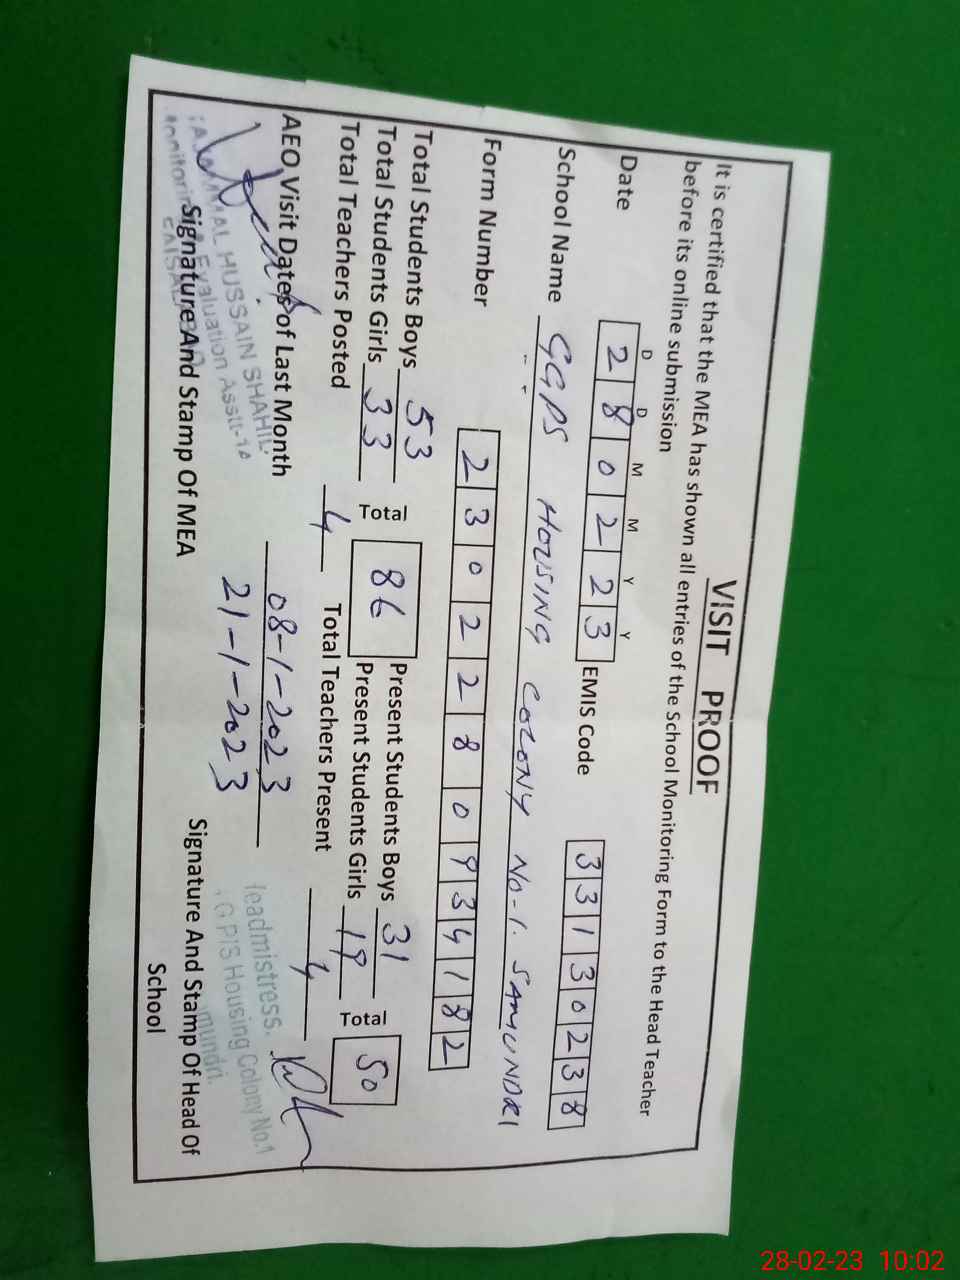 VISIT PROOF
It is certified that the MEA has shown all entries of the School Monitoring Form to the Head Teacher
before its online submission
D D M M Y Y
Date 2 8 0 2 2 3 EMIS Code 3 3 1 3 0 2 3 8
School Name GGPS HOUSING COLONY NO-1. SAMUNDRI
Form Number 2 3 0 2 2 8 0 9 3 4 1 8 2
Total Students Boys 53 Total 86 Present Students Boys 31 Total 50
Total Students Girls 33 Present Students Girls 19
Total Teachers Posted 4 Total Teachers Present 4
AEO Visit Dates of Last Month 08-1-2023
21-1-2023
HUSSAIN SHAHID
Evaluation Asstt-
Signature And Stamp Of MEA
Headmistress
Housing Colony No.1
Signature And Stamp Of Head Of
School
28-02-23 10:02